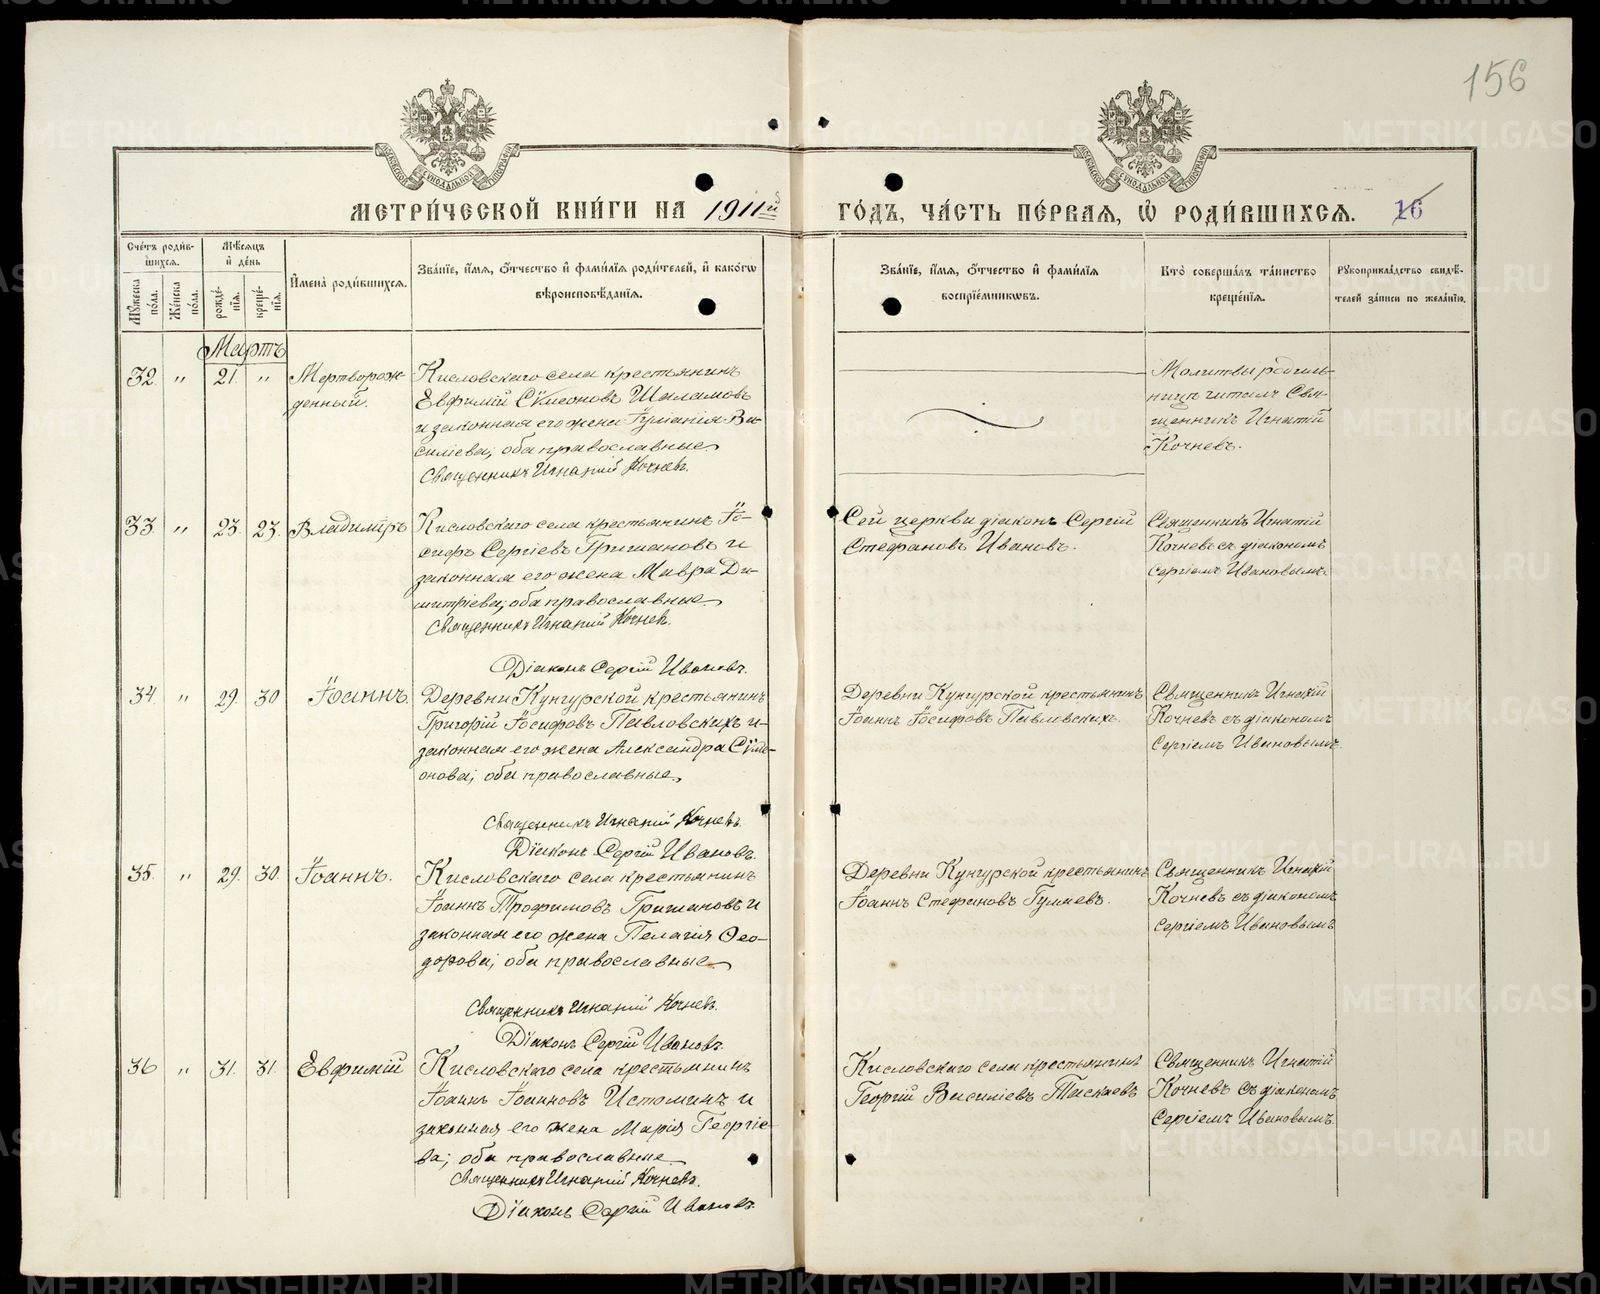 156
МЕТРИ́ЧЕСКОЙ КНИ́ГИ НА 1911й
ГО́ДЪ, ЧА́СТЬ ПЕ́РВАЯ, Ѡ РОДИ́ВШИХСЯ.
16
Сче́тъ роди́в-
шихся.
Му́жеска
по́ла.
Же́нска
по́ла.
Мѣ́сяцъ
и де́нь
рожде́-
нїя.
креще́-
нїя.
И҆мена̀ роди́вшихся.
Зва́нїе, и҆́мя, ѻ҆́тчество и҆ фами́лїя роди́телей, и҆ како́гѡ
вѣроисповѣ́данїя.
Зва́нїе, и҆́мя, ѻ҆́тчество и҆ фами́лїя
воспрїе́мникѡвъ.
Кто̀ соверша́лъ та́инство
креще́нїя.
Рꙋкоприкла́дство свидѣ́-
телей за́писи по жела́нїю.
Мартъ
32. " 21. " Мертворож-
денный.
Кисловскаго села крестьянинъ
Евфимій Сѵмеоновъ Шаламовъ
и законная его жена Гуманія Ва-
силіева; оба православные
Священникъ Игнатій Кочневъ.
Молитвы родиль-
ницѣ читалъ Свя-
щенникъ Игнатій
Кочневъ.
33. " 23. 23. Владиміръ
Кисловскаго села крестьянинъ Іо-
сифъ Сергіевъ Гришановъ и
законная его жена Мавра Ди-
митріева; оба православные
Священникъ Игнатій Кочнев.
Діаконъ Сергій Ивановъ.
Сей церкви діаконъ Сергій
Стефановъ Ивановъ.
Священникъ Игнатій
Кочневъ съ діакономъ
Сергіемъ Ивановымъ.
34. " 29. 30 Іоаннъ.
Деревни Кунгурской крестьянинъ
Григорій Іосифовъ Павловскихъ и
законная его жена Александра Сѵме-
онова; оба православные
Священникъ Игнатій Кочневъ.
Діаконъ Сергій Ивановъ.
Деревни Кунгурской крестьянинъ
Іоаннъ Іосифовъ Павловскихъ.
Священникъ Игнатій
Кочневъ съ діакономъ
Сергіемъ Ивановымъ.
35. " 29. 30. Іоаннъ.
Кисловскаго села крестьянинъ
Іоаннъ Трофимовъ Гришановъ и
законная его жена Пелагія Ѳео-
дорова; оба православные
Священникъ Игнатій Кочневъ.
Діаконъ Сергій Ивановъ.
Деревни Кунгурской крестьянинъ
Іоаннъ Стефановъ Гулаевъ.
Священникъ Игнатій
Кочневъ съ діакономъ
Сергіемъ Ивановымъ
36 " 31. 31. Евфимій
Кисловскаго села крестьянинъ
Іоаннъ Іоанновъ Истоминъ и
законная его жена Марія Георгіе-
ва; оба православные
Священникъ Игнатій Кочневъ.
Діаконъ Сергій Ивановъ.
Кисловскаго села крестьянинъ
Георгій Василіевъ Таскаевъ
Священникъ Игнатій
Кочневъ съ діакономъ
Сергіемъ Ивановымъ.
METRIKI.GASO-URAL.RU